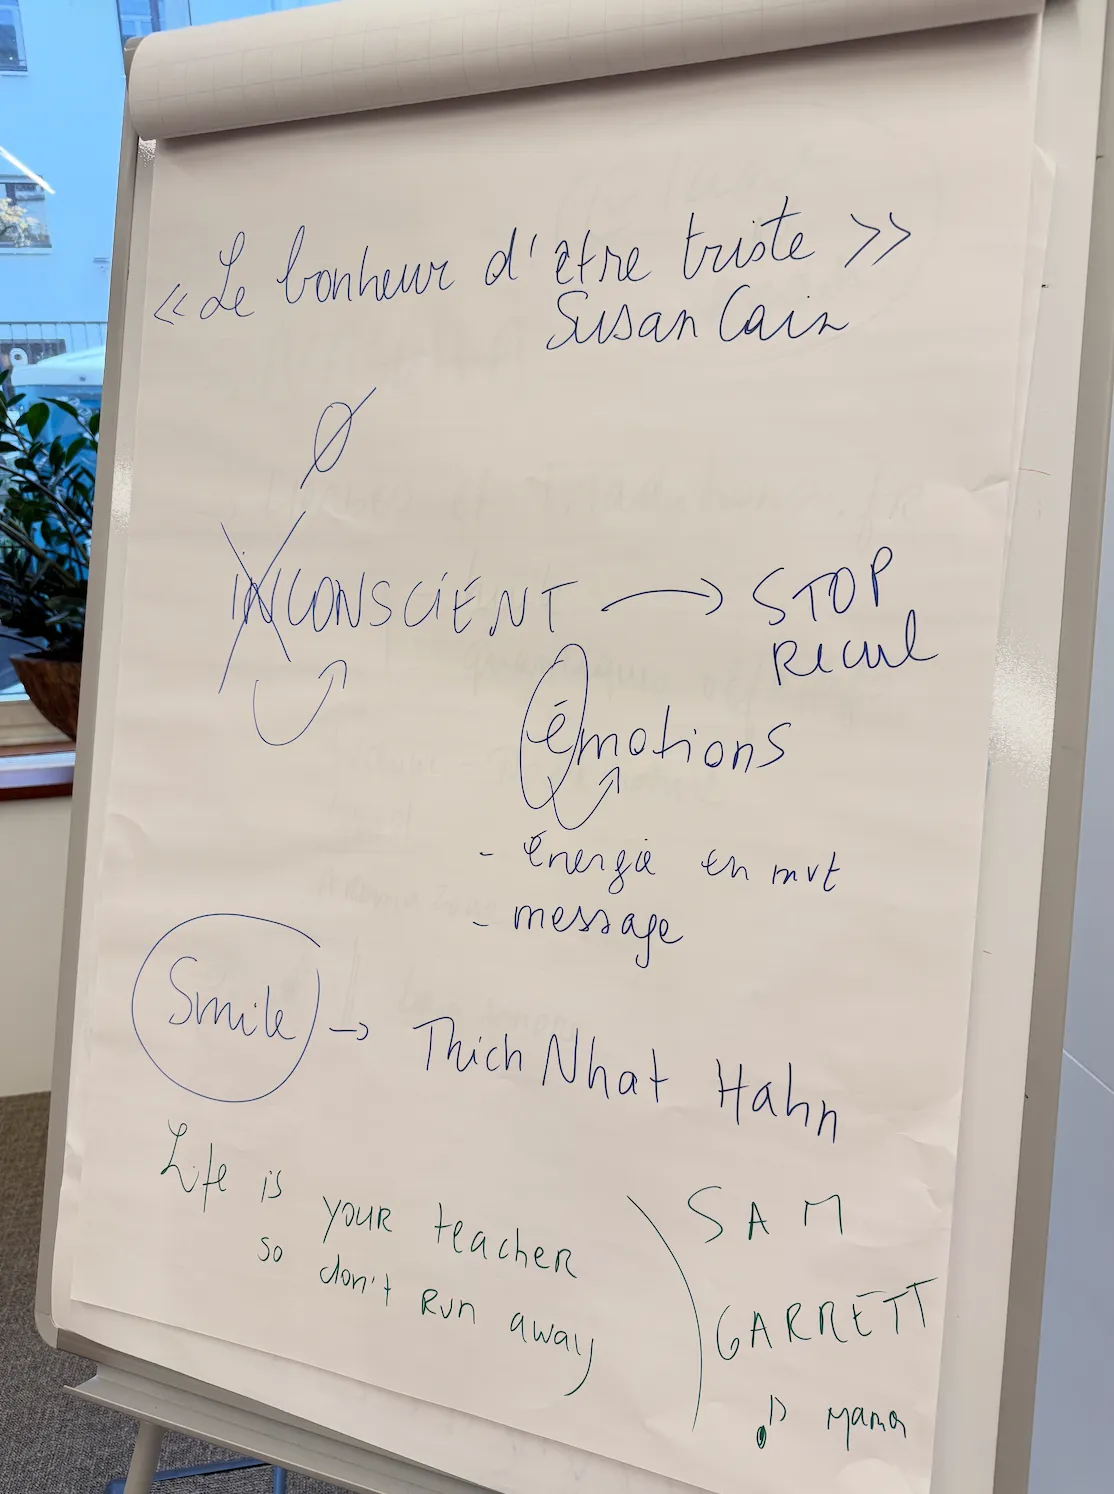 « Le bonheur d'être triste »
Susan Cain
Ø
INCONSCIENT → STOP
Recul
émotions
- énergie en mvt
- message
Smile → Thich Nhat Hahn
Life is your teacher
so don't run away
SAM
GARRETT
♪ Mama